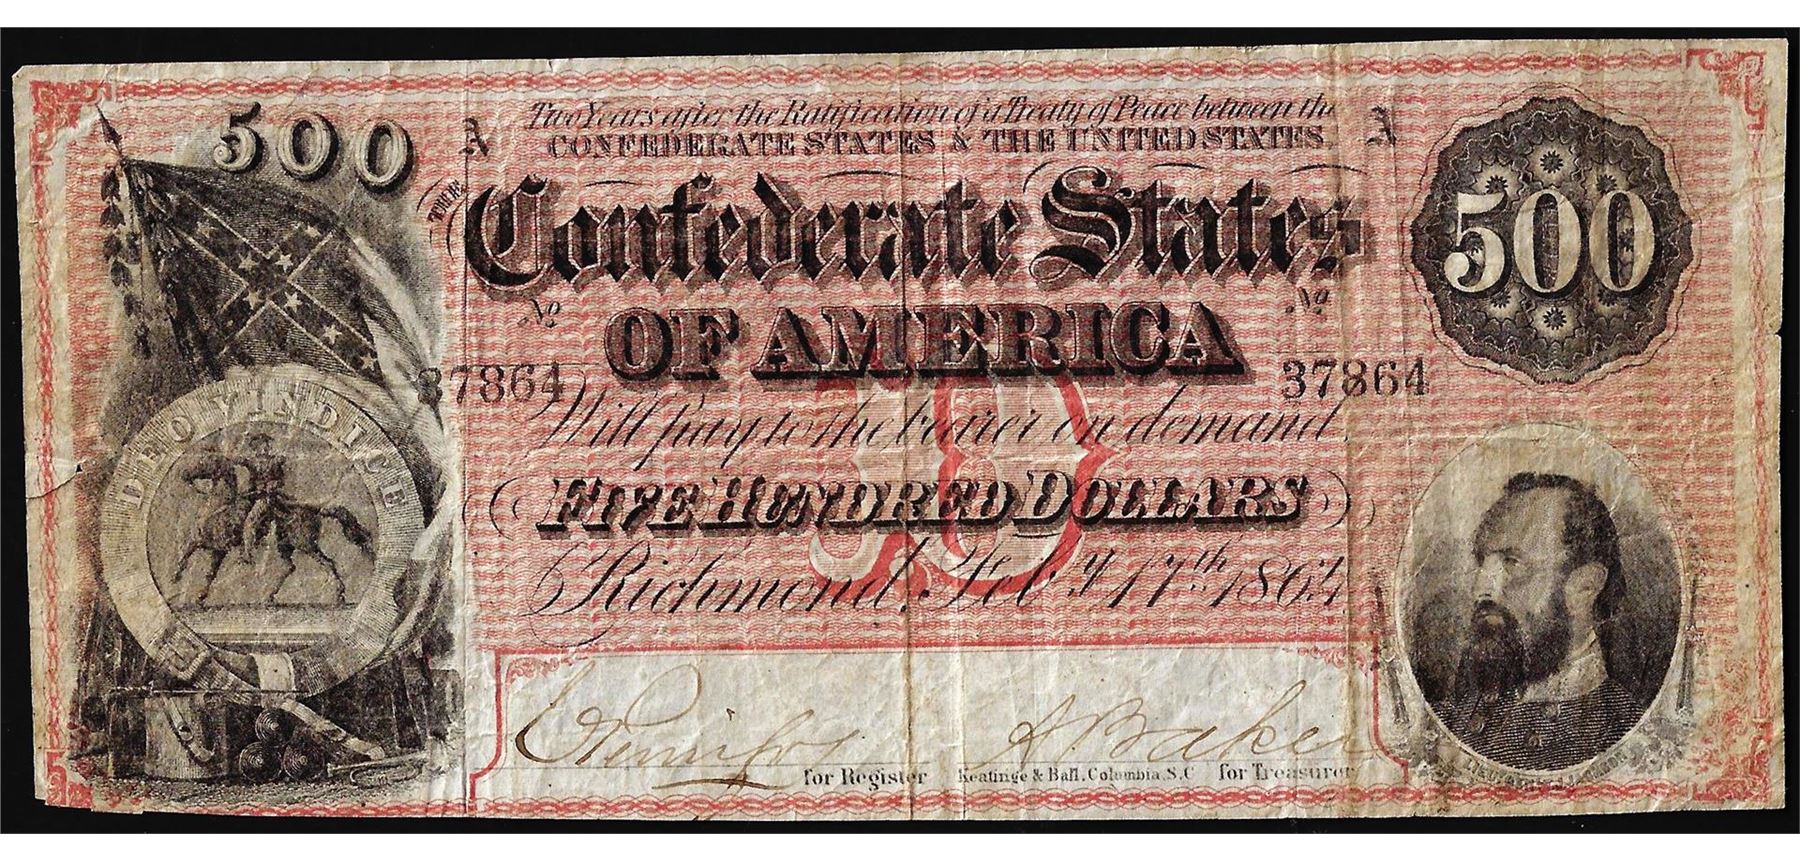 500
A
Two Years after the Ratification of a Treaty of Peace between the
A
CONFEDERATE STATES & THE UNITED STATES.
THE
Confederate States
500
No
No
OF AMERICA
37864
37864
Will pay to the bearer on demand
DEO VINDICE
FIVE HUNDRED DOLLARS
Richmond, Feby. 17th 1864
A Baker
for Register
Keatinge & Ball, Columbia, S.C
for Treasurer